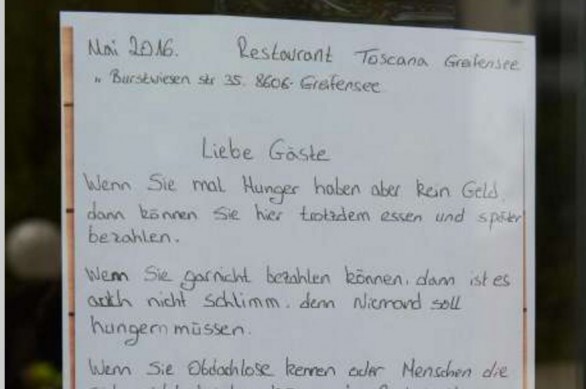 Mai 2016. Restaurant Toscana Greifensee
" Burstwiesen str 35. 8606 Greifensee
Liebe Gäste
Wenn Sie mal Hunger haben aber kein Geld,
dann können Sie hier trotzdem essen und später
bezahlen.
Wenn Sie garnicht bezahlen können, dann ist es
auch nicht schlimm. denn Niemand soll
hungern müssen.
Wenn Sie Obdachlose kennen oder Menschen die